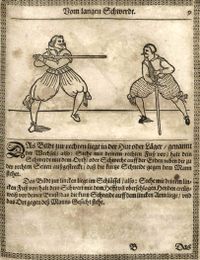 Vom langen Schwerdt. 9
DAs Bildt zur rechten liegt in der Hut oder Läger / genannt
der Wechsel / also: Stehe mit deinem rechten Fuß vor / halt dein
Schwerdt mit dem Orth / oder Schweche auff der Erden neben der zu
der rechten Seiten außgestreckt / daß die kurtze Schneide gegen dem Mann
stehet.
Das Bildt zur lincken liegt im Schlüssel / also: Stehe mit deinem lin-
cken Fuß vor / halt dein Schwerdt mit dem Hefft
vor deiner Brust / daß die kurtz Schneide auff dem lincken Arm lige / und
das Ort gegen deß Manns Gesicht stehe.
B Das